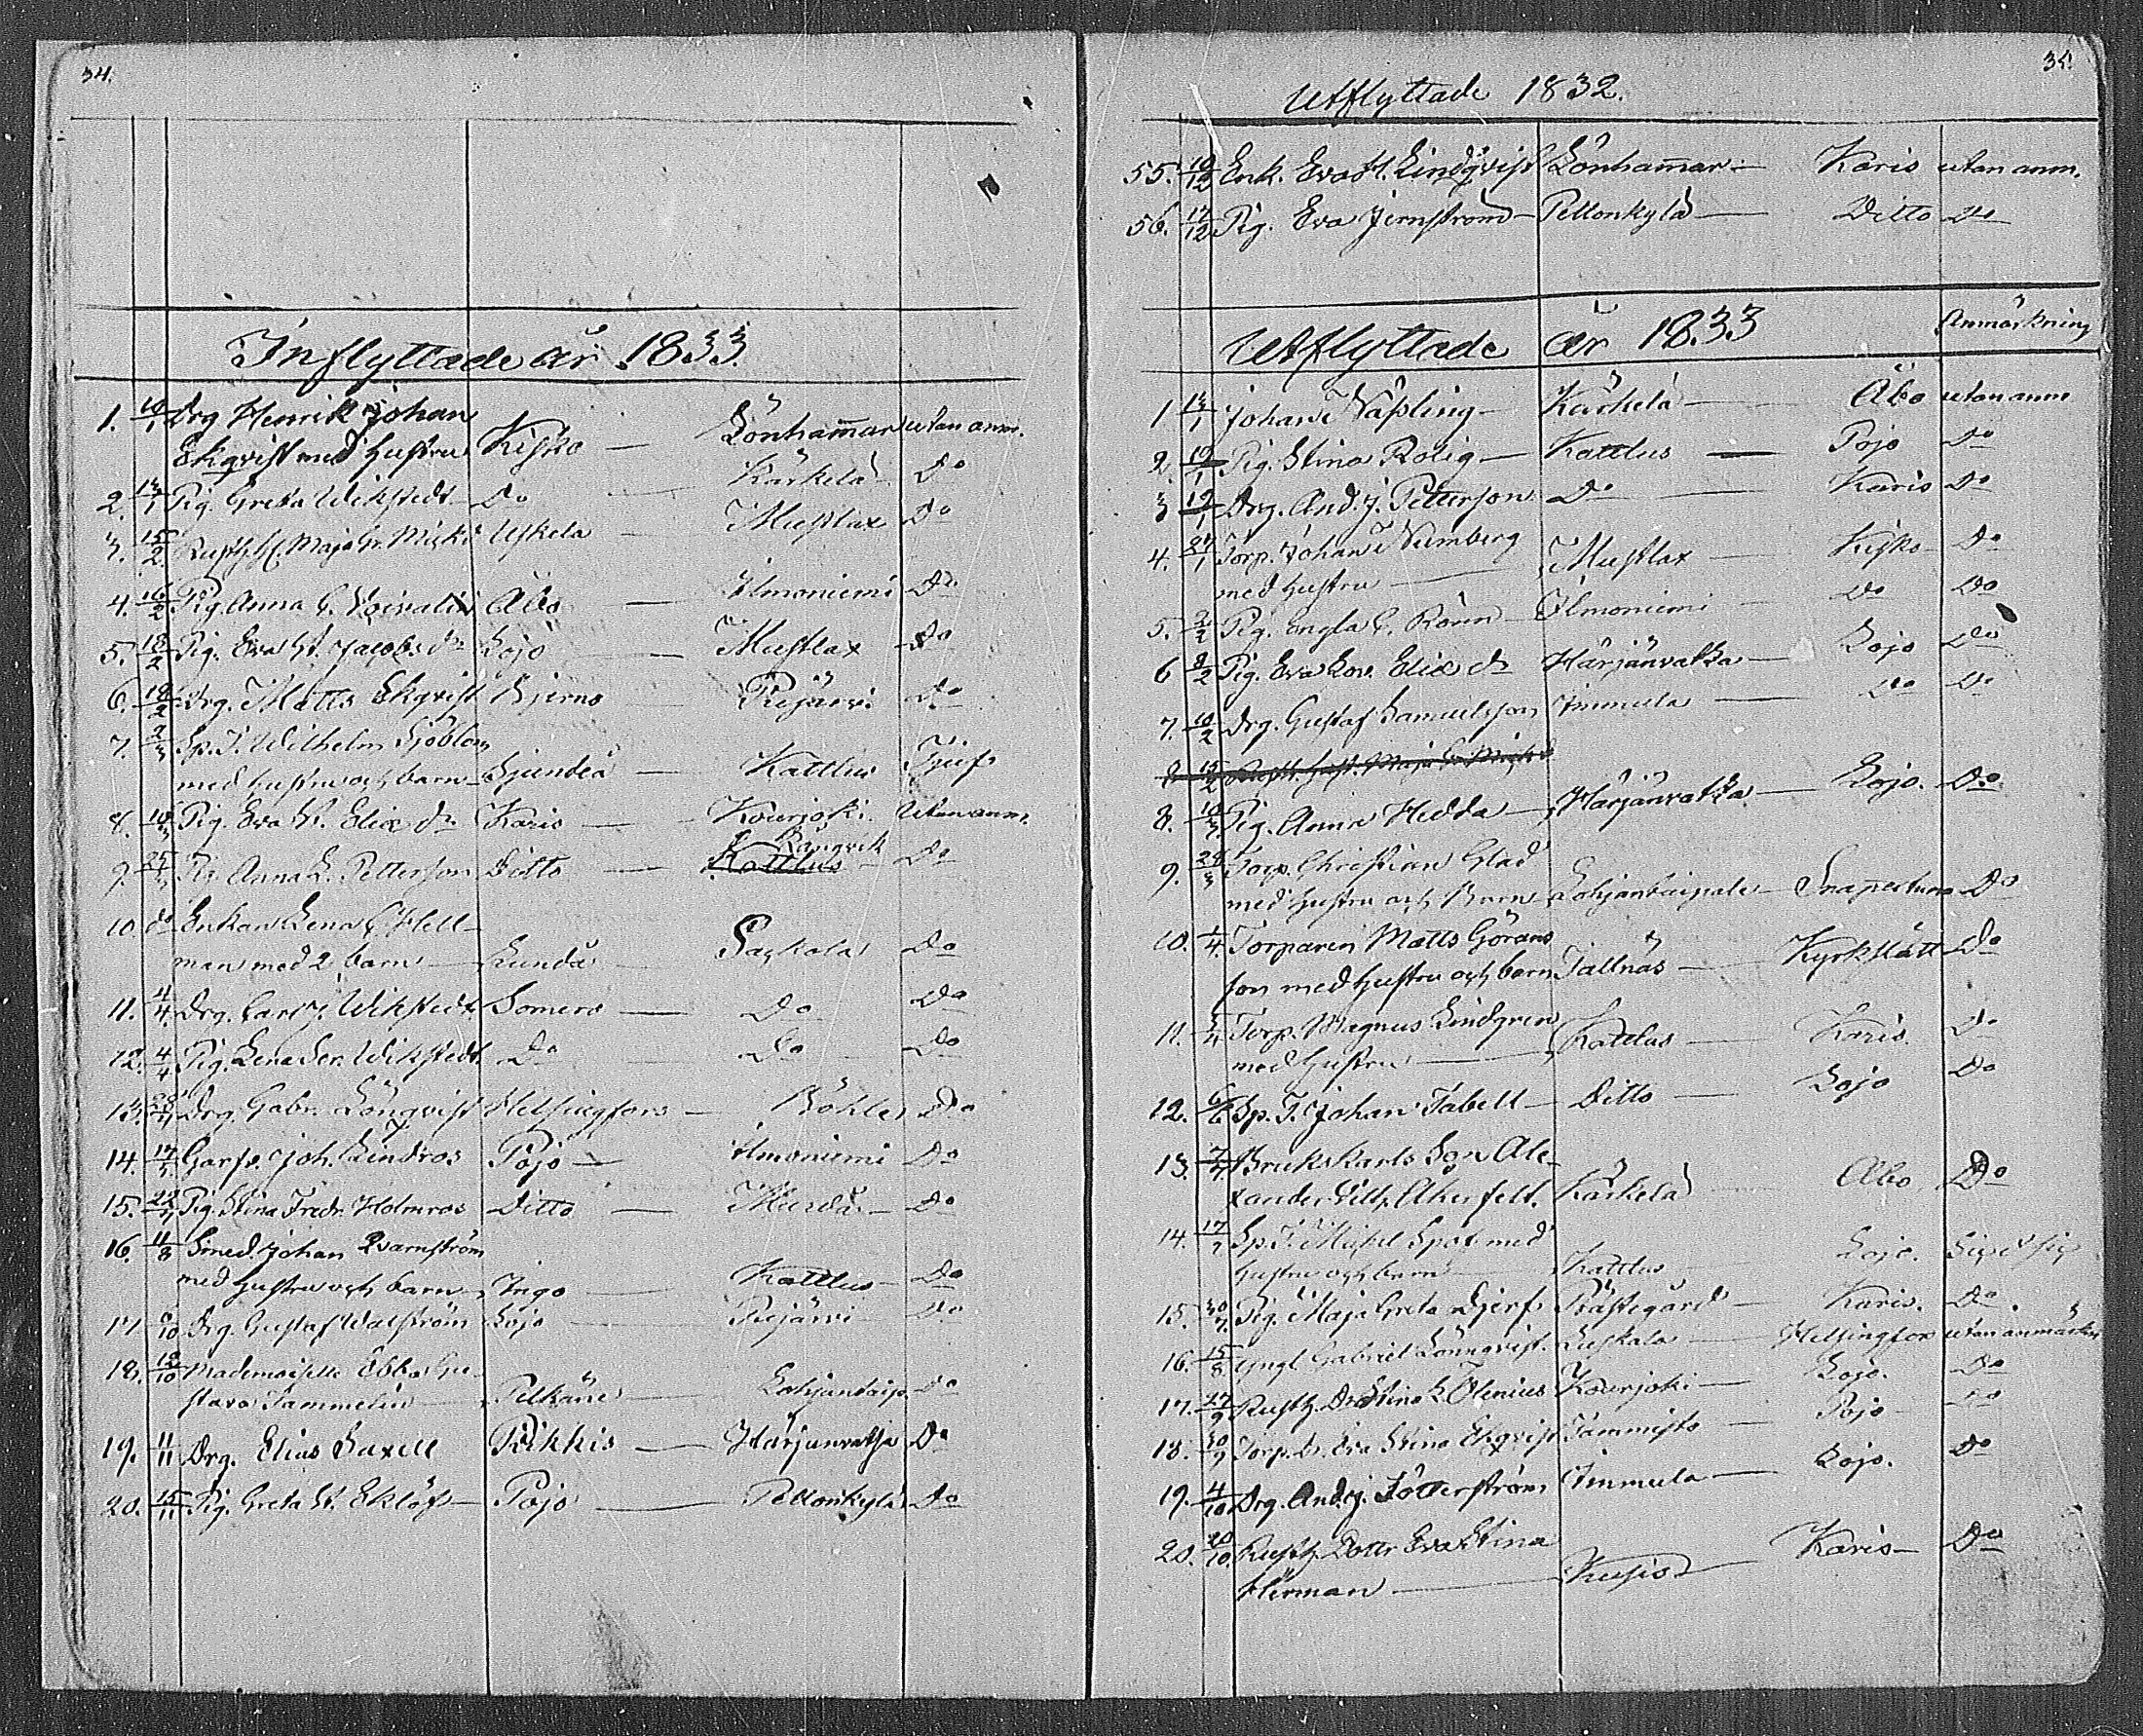 34.
Inflyttade år 1833.
1. 10/1 Drg Henrik Johan
Ekqvist med hustru Kisko — Lönhamar utan anm.
2. 13/1 Pig. Greta Wikstedt Do — Kärkelä Do
3. 15/2 Rusth. H. Maja Gr. Uskela — Mustlax Do
4. 16/2 Pig. Anna C. Åbo — Ilmoniemi Do
5. 18/2 Pig. Eva St. Jacobs dr Lojo — Mustlax Do
6. 18/2 Drg. Matts Ekqvist Bjerno Pipjärvi Do
7. 2/3 Sp. T. Wilhelm Sjöblom
med hustru och barn Sjundeå — Kattlus
8. 10/3 Pig. Eva St. Elix dr Karis — Kourjoki. Utan anm.
Rängvik
9. 25/3 Pig. Anna L. Petterson Ditto — Kattlus Do
10. do Enkan Lena C. Hell-
man med 2 barn — Lunda Do
11. 4/4 Drg. Carl J. Wikstedt Somero — Do Do
12. 4/4 Pig. Lena Ser. Wikstedt Do Do Do
13. 28/4 Drg. Gabr. Lönqvist Helsingfors — Böhle Do
14. 17/5 Garfv. Joh. Lindros Pojo — Ilmoniemi Do
15. 22/7 Pig. Stina Fredr. Holmros Ditto — Do
16. 11/8 Smed. Johan Qvarnström
med hustru och barn Ingo — Kattlus Do
17 8/10 Drg. Gustaf Walström Lojo — Pipjärvi Do
18. 18/10 Mademoiselle Ebba Gu-
stava Tammelin — Pelkäne — Lohjantaip. Do
19. 11/11 Drg. Elias Saxell Pikkis — Härjanvatsa Do
20. 15/11 Pig. Greta St. Eklöf — Pojo — Peltonkylä Do
35.
Utflyttade 1832.
55. 10/12 Enk. Eva M. Lindqvist Lönhamar — Karis utan anm.
56. 17/12 Pig. Eva Jernström — Peltonkylä — Ditto Do
Utflyttade år 1833 Anmärkning
1 13/1 Johan Kärkelä — Åbo utan anm
2. 19/1 Pig. Stina Rolig — Kattlus — Pojo Do
3 19/1 Drg. And. J. Petterson Do — Karis Do
4. 27/1 Torp. Johan
med hustru — Mustlax — Kisko Do
5. 2/2 Pig. Engla C. Rönn — Ilmoniemi — Do Do
6 8/2 Pig. Eva Lov. Elix dr Härjänvatsa — Lojo Do
7. 10/2 Drg. Gustaf Samuelsson Immula — Do Do
8 15/2 Rusth. Hust. Maja Gr.
8. 10/3 Pig. Anna Hedda — Härjänvatsa — Lojo. Do
9. 28/3 Torp. Christian Glad
med hustru och Barn Lohjantaipale — Snapertuna Do
10. 1/4 Torparen Matts Görans
son med hustru och barn Tallnäs — Kyrkslätt Do
11. 5/4 Torp. Magnus Lindgren
med hustru — Kattlus — Karis. Do
12. 6/6 Sp. T. Johan Tabell — Ditto — Lojo Do
13. 7/7 Bruks Karls Son Ale-
xander Vilh. Åkerfelt. Kärkelä Åbo Do
14. 17/7 Sp. T. Michel Spof med
hustru och barn — Kattlus — Lojo.
15. 30/7 Pig. Maja Greta Djerf Prästegård — Karis. Do
16. 15/8 Yngl. Gabriel Lönnqvist. Luskala — Helsingfors utan anmärkn
17. 27/9 Rusth. Dr Stina L. Olenius Kourjoki — Lojo. Do
18. 30/9 Torp. Dr. Eva Stina Ekqvist Tammisto — Pojo Do
19. 4/10 Drg. And. J. Sötterström Immula — Lojo. Do
20. 20/10 Rusth. Dotter Eva Stina
Herman — Kusio — Karis — Do